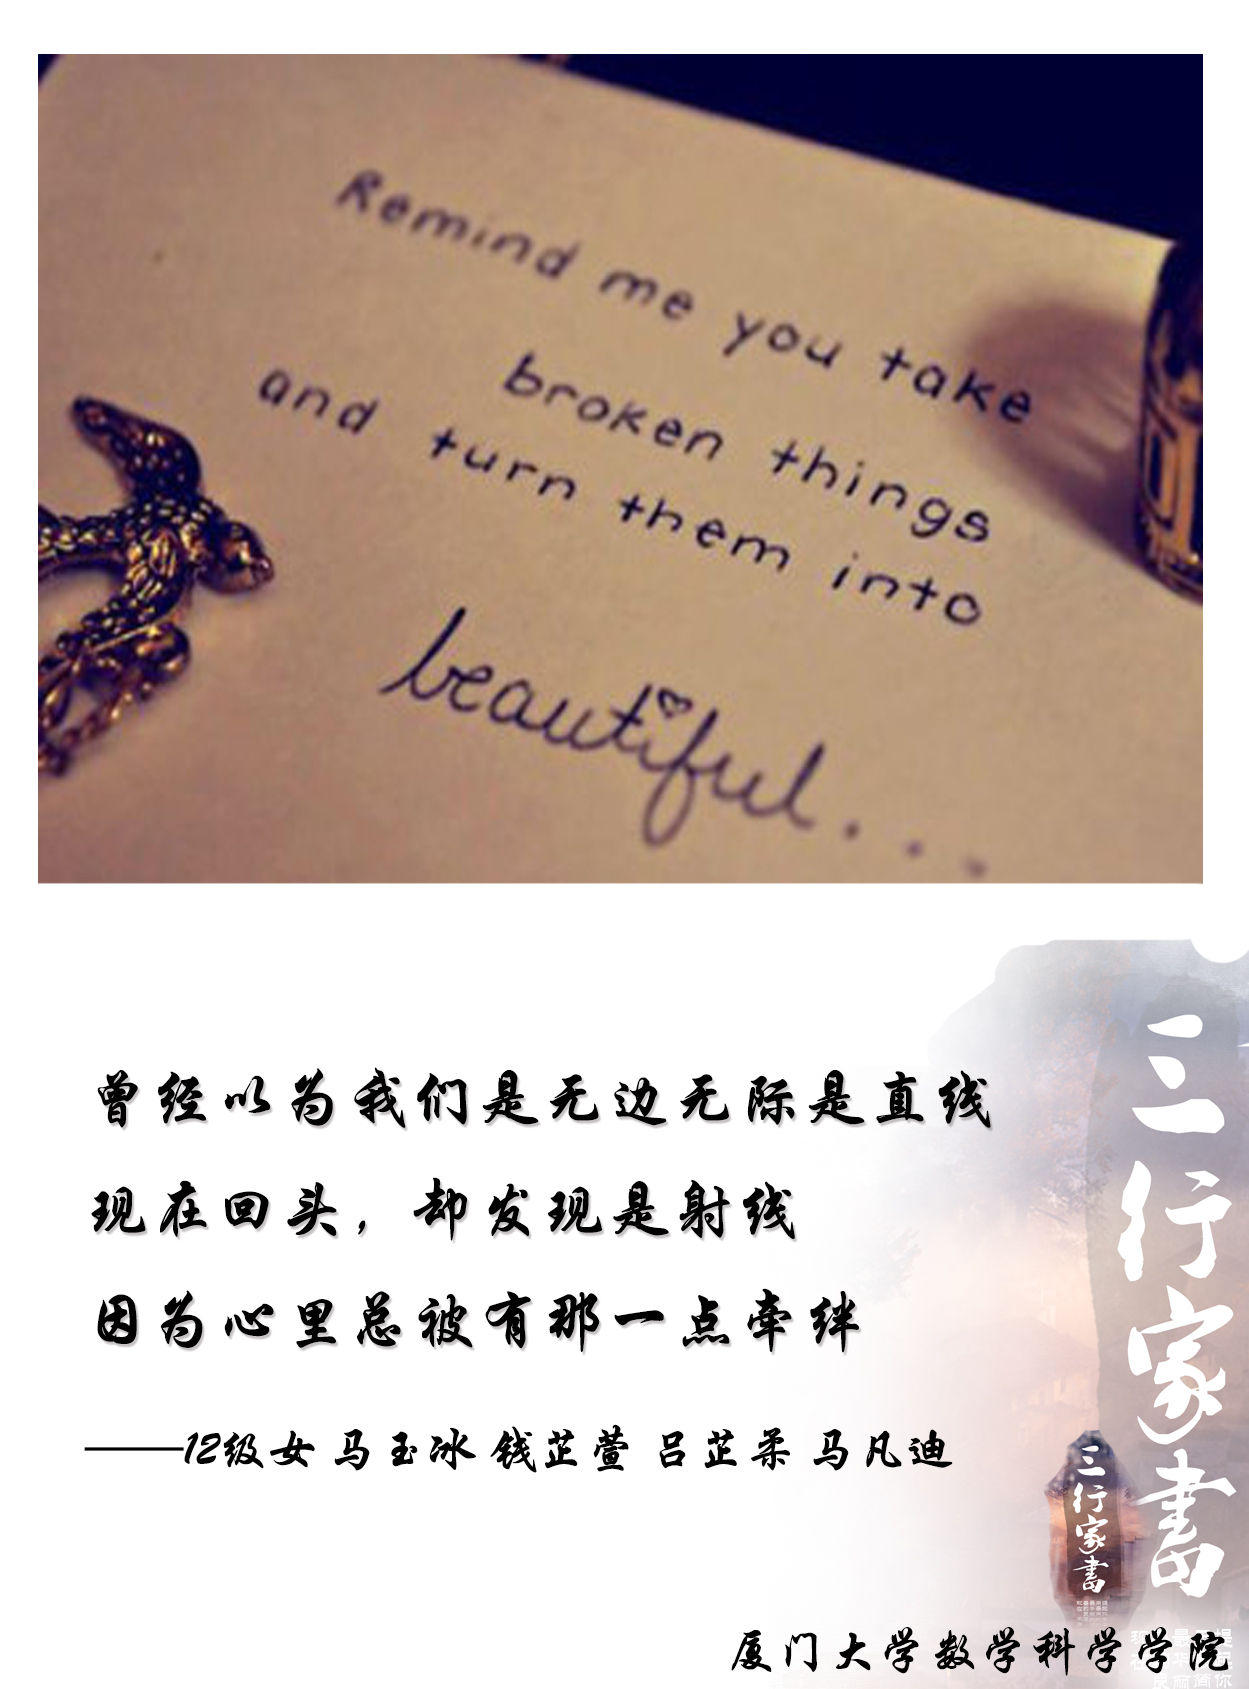 Remind me you take
broken things
and turn them into
beautiful...
曾经以为我们是无边无际是直线
现在回头，却发现是射线
因为心里总被有那一点牵绊
——12级女 马玉冰 钱芷萱 吕芷柔 马凡迪
三行家書
三行家書
厦门大学数学科学学院